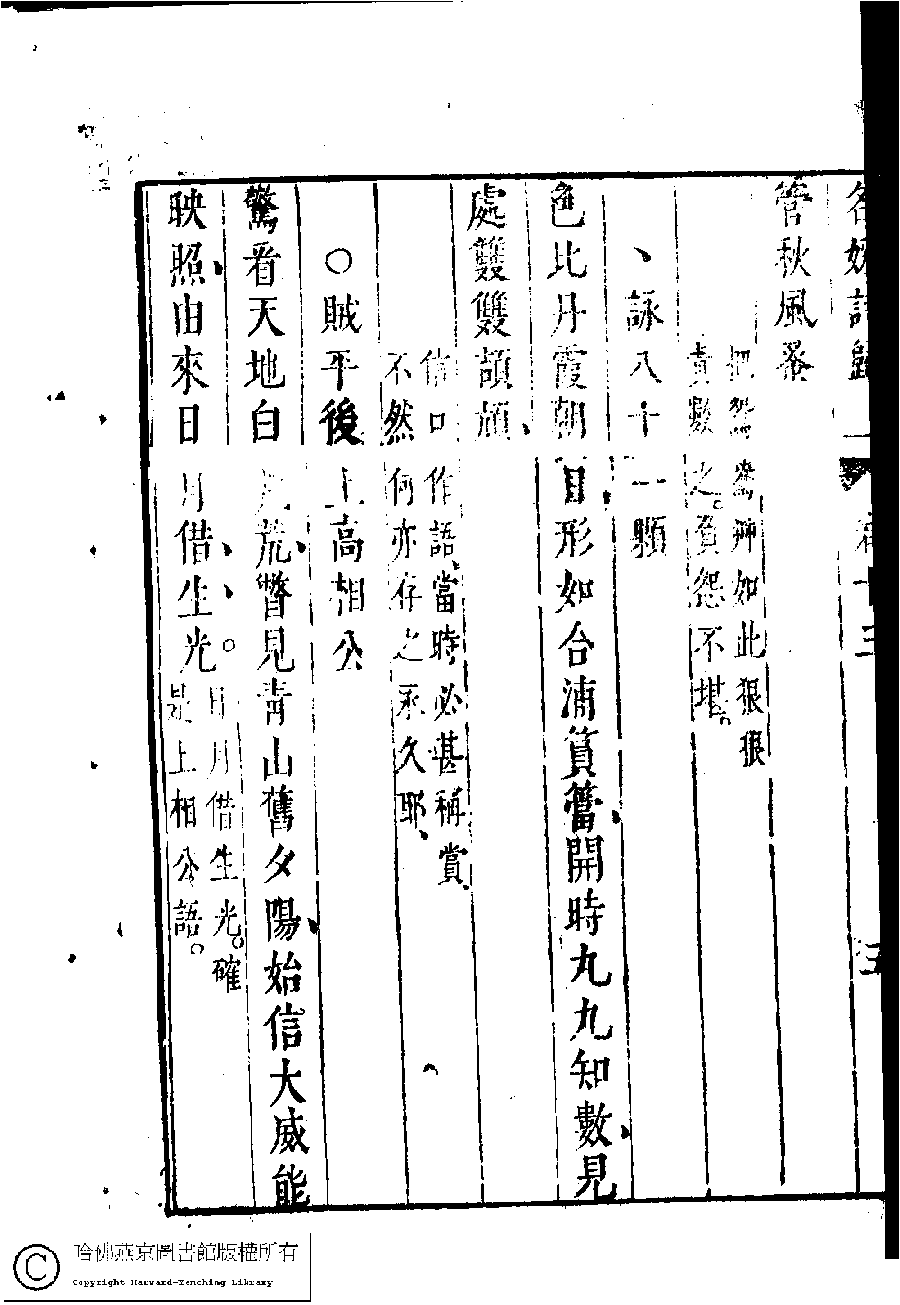 名媛詩歸 卷十三 五
管秋風蚤
把鴛鴦辨如此狠狠
責數之。貧怨不堪。
、詠八十一顆
色比丹霞朝日形如合浦篔簹開時九九知數見
處雙雙頡頏
信口作語、當時必甚稱賞、
不然何亦存之永久耶、
○賊平後上高相公
驚看天地白荒荒瞥見青山舊夕陽始信大威能
映照由來日月借生光。
日月借生光。確
是上相公語。
哈佛燕京圖書館版權所有
Copyright Harvard-Yenching Library